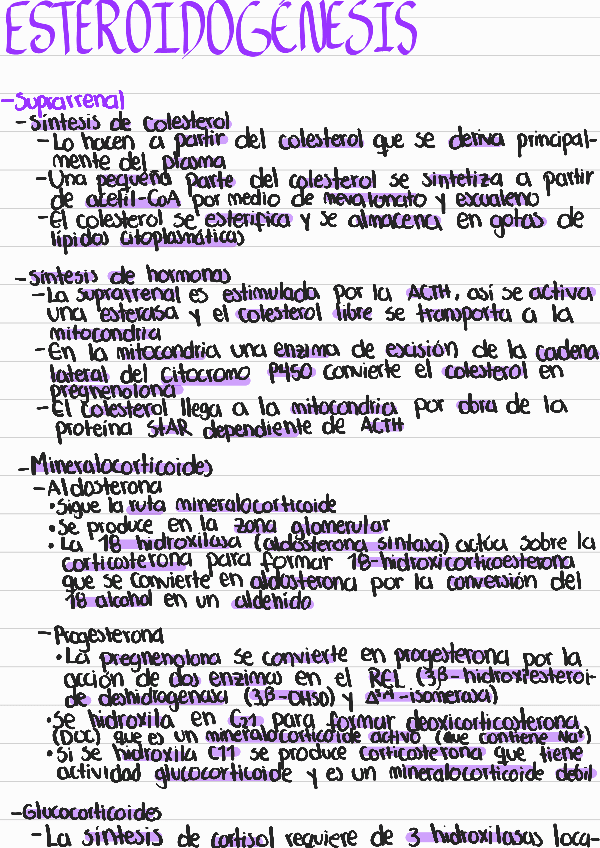 ESTEROIDOGÉNESIS
-Suprarrenal
-Síntesis de colesterol
-Lo hacen a partir del colesterol que se deriva principal-
mente del plasma
-Una pequeña parte del colesterol se sintetiza a partir
de acetil-CoA por medio de mevalonato y escualeno
-El colesterol se esterifica y se almacena en gotas de
lípidos citoplasmáticas
-Síntesis de hormonas
-La suprarrenal es estimulada por la ACTH, así se activa
una esterasa y el colesterol libre se transporta a la
mitocondria
-En la mitocondria una enzima de escisión de la cadena
lateral del citocromo P450 convierte el colesterol en
pregnenolona
-El colesterol llega a la mitocondria por obra de la
proteína StAR dependiente de ACTH
-Mineralocorticoides
-Aldosterona
•Sigue la ruta mineralocorticoide
•Se produce en la zona glomerular
•La 18 hidroxilasa (aldosterona sintasa) actúa sobre la
corticosterona para formar 18-hidroxicorticoesterona
que se convierte en aldosterona por la conversión del
18 alcohol en un aldehido
-Progesterona
•La pregnenolona se convierte en progesterona por la
acción de dos enzimas en el REL (3β-hidroxiesteroi-
de deshidrogenasa (3β-OHSD) y Δ⁵,⁴-isomerasa)
•Se hidroxila en C21 para formar deoxicorticosterona
(DOC) que es un mineralocorticoide activo (que contiene Na⁺)
•Si se hidroxila C11 se produce corticosterona que tiene
actividad glucocorticoide y es un mineralocorticoide debil
-Glucocorticoides
-La síntesis de cortisol requiere de 3 hidroxilasas loca-